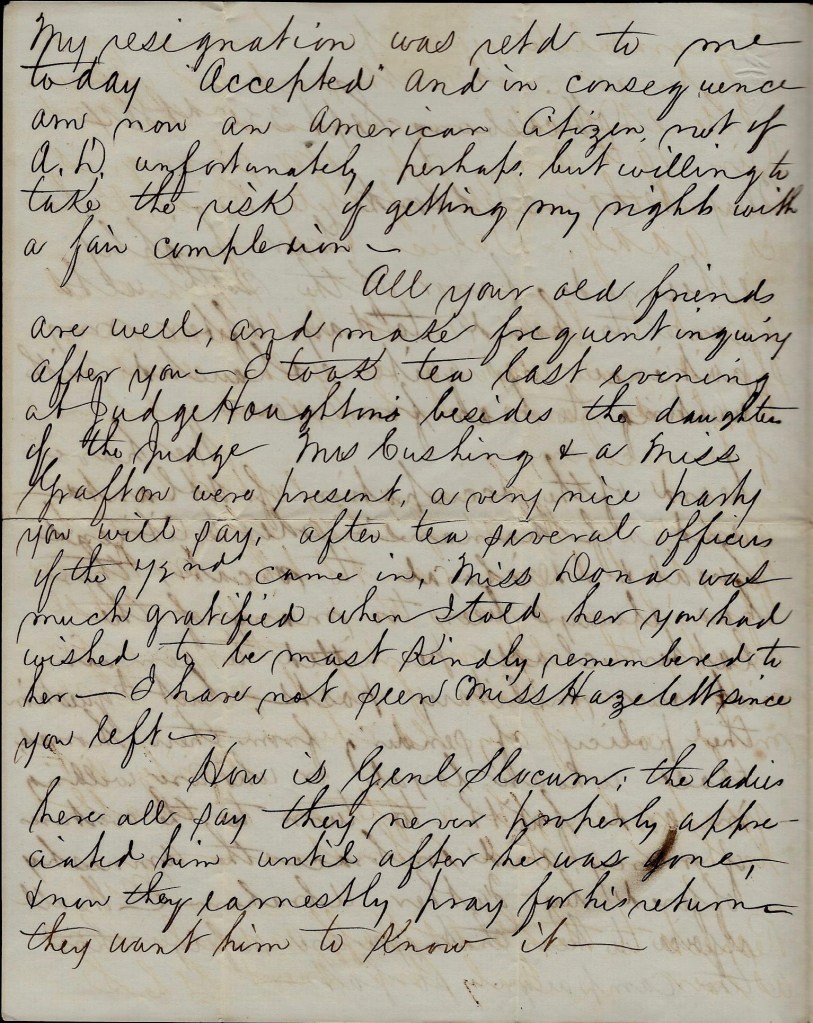 My resignation was retd to me
today "Accepted" And in consequence
am now an American Citizen, not of
A. D. unfortunately perhaps. but willing to
take the risk of getting my rights with
a fair complexion —
All your old friends
are well, and make frequent inquiry
after you — I took tea last evening
at Judge Houghton's besides the daughter
of the Judge Mrs Cushing & a Miss
Grafton were present, a very nice party
you will say, after tea several officers
of the 72nd came in, Miss Dona was
much gratified when I told her you had
wished to be most kindly remembered to
her — I have not seen Miss Hazelett since
you left —
How is Genl Slocum; the ladies
here all say they never properly appre-
ciated him until after he was gone,
& now they earnestly pray for his return —
they want him to know it —